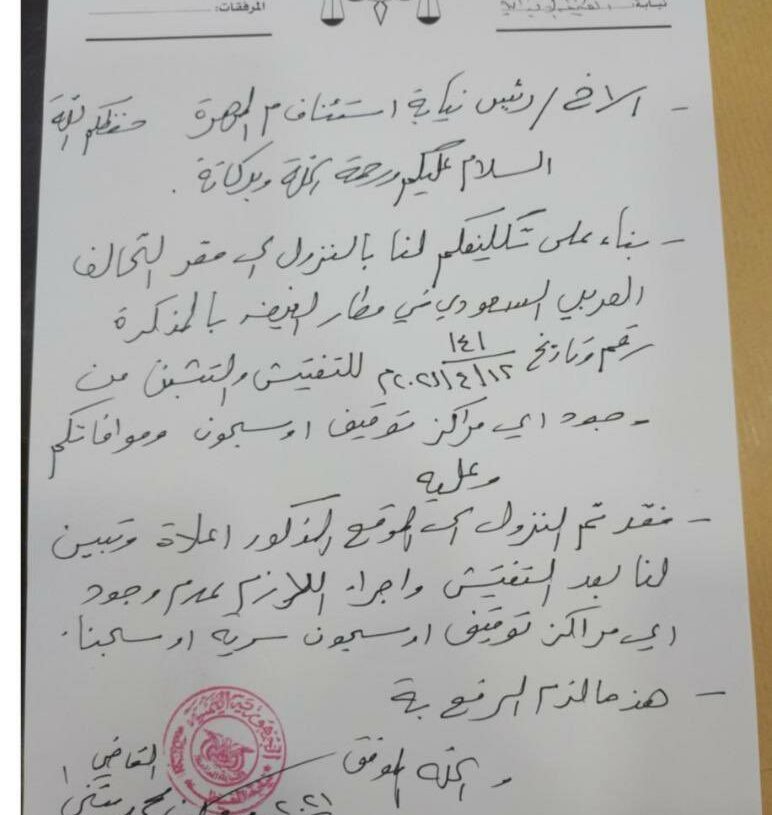 المرفقات:
نيابة:
- الاخ / رئيس نيابة استئناف م المهرة حفظكم الله
السلام عليكم ورحمة الله وبركاتة .
- بناء على تكليفكم لنا بالنزول الى مقر التحالف
العربي السعودي في مطار الغيضه بالمذكرة
رقم وتاريخ ١٤١ / ١٢/٤/٢٠٢١م للتفتيش والتثبت من
وجود اي مراكز توقيف او سجون وموافاتكم
وعليه
- فقد تم النزول الى الموقع المذكور اعلاة وتبين
لنا بعد التفتيش واجراء اللازم عدم وجود
اي مراكز توقيف او سجون سريه او سجناء.
- هذ مالزم الرفع بة
و الله الموفق
القاضي /
الجمهورية اليمنية